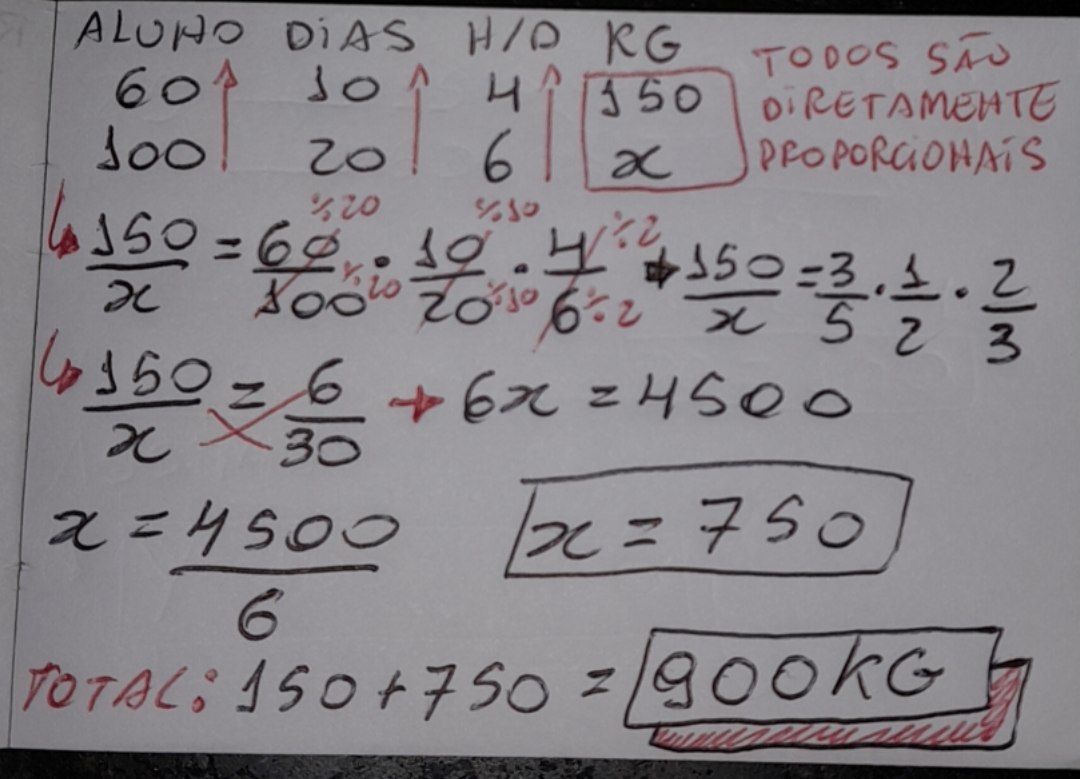 ALUNO DIAS H/D KG
60 10 4 150
100 20 6 x
TODOS SÃO
DIRETAMENTE
PROPORCIONAIS
150/x = 60/100 · 10/20 · 4/6 → 150/x = 3/5 · 1/2 · 2/3
÷20 ÷10 ÷2
÷20 ÷10 ÷2
150/x = 6/30 → 6x = 4500
x = 4500/6 x = 750
TOTAL: 150 + 750 = 900KG